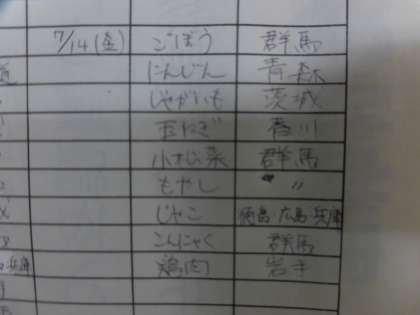 7/14(金) ごぼう 群馬
にんじん 青森
じゃがいも 茨城
玉ねぎ 香川
小松菜 群馬
もやし 〃
じゃこ 徳島・広島・兵庫
こんにゃく 群馬
鶏肉 岩手